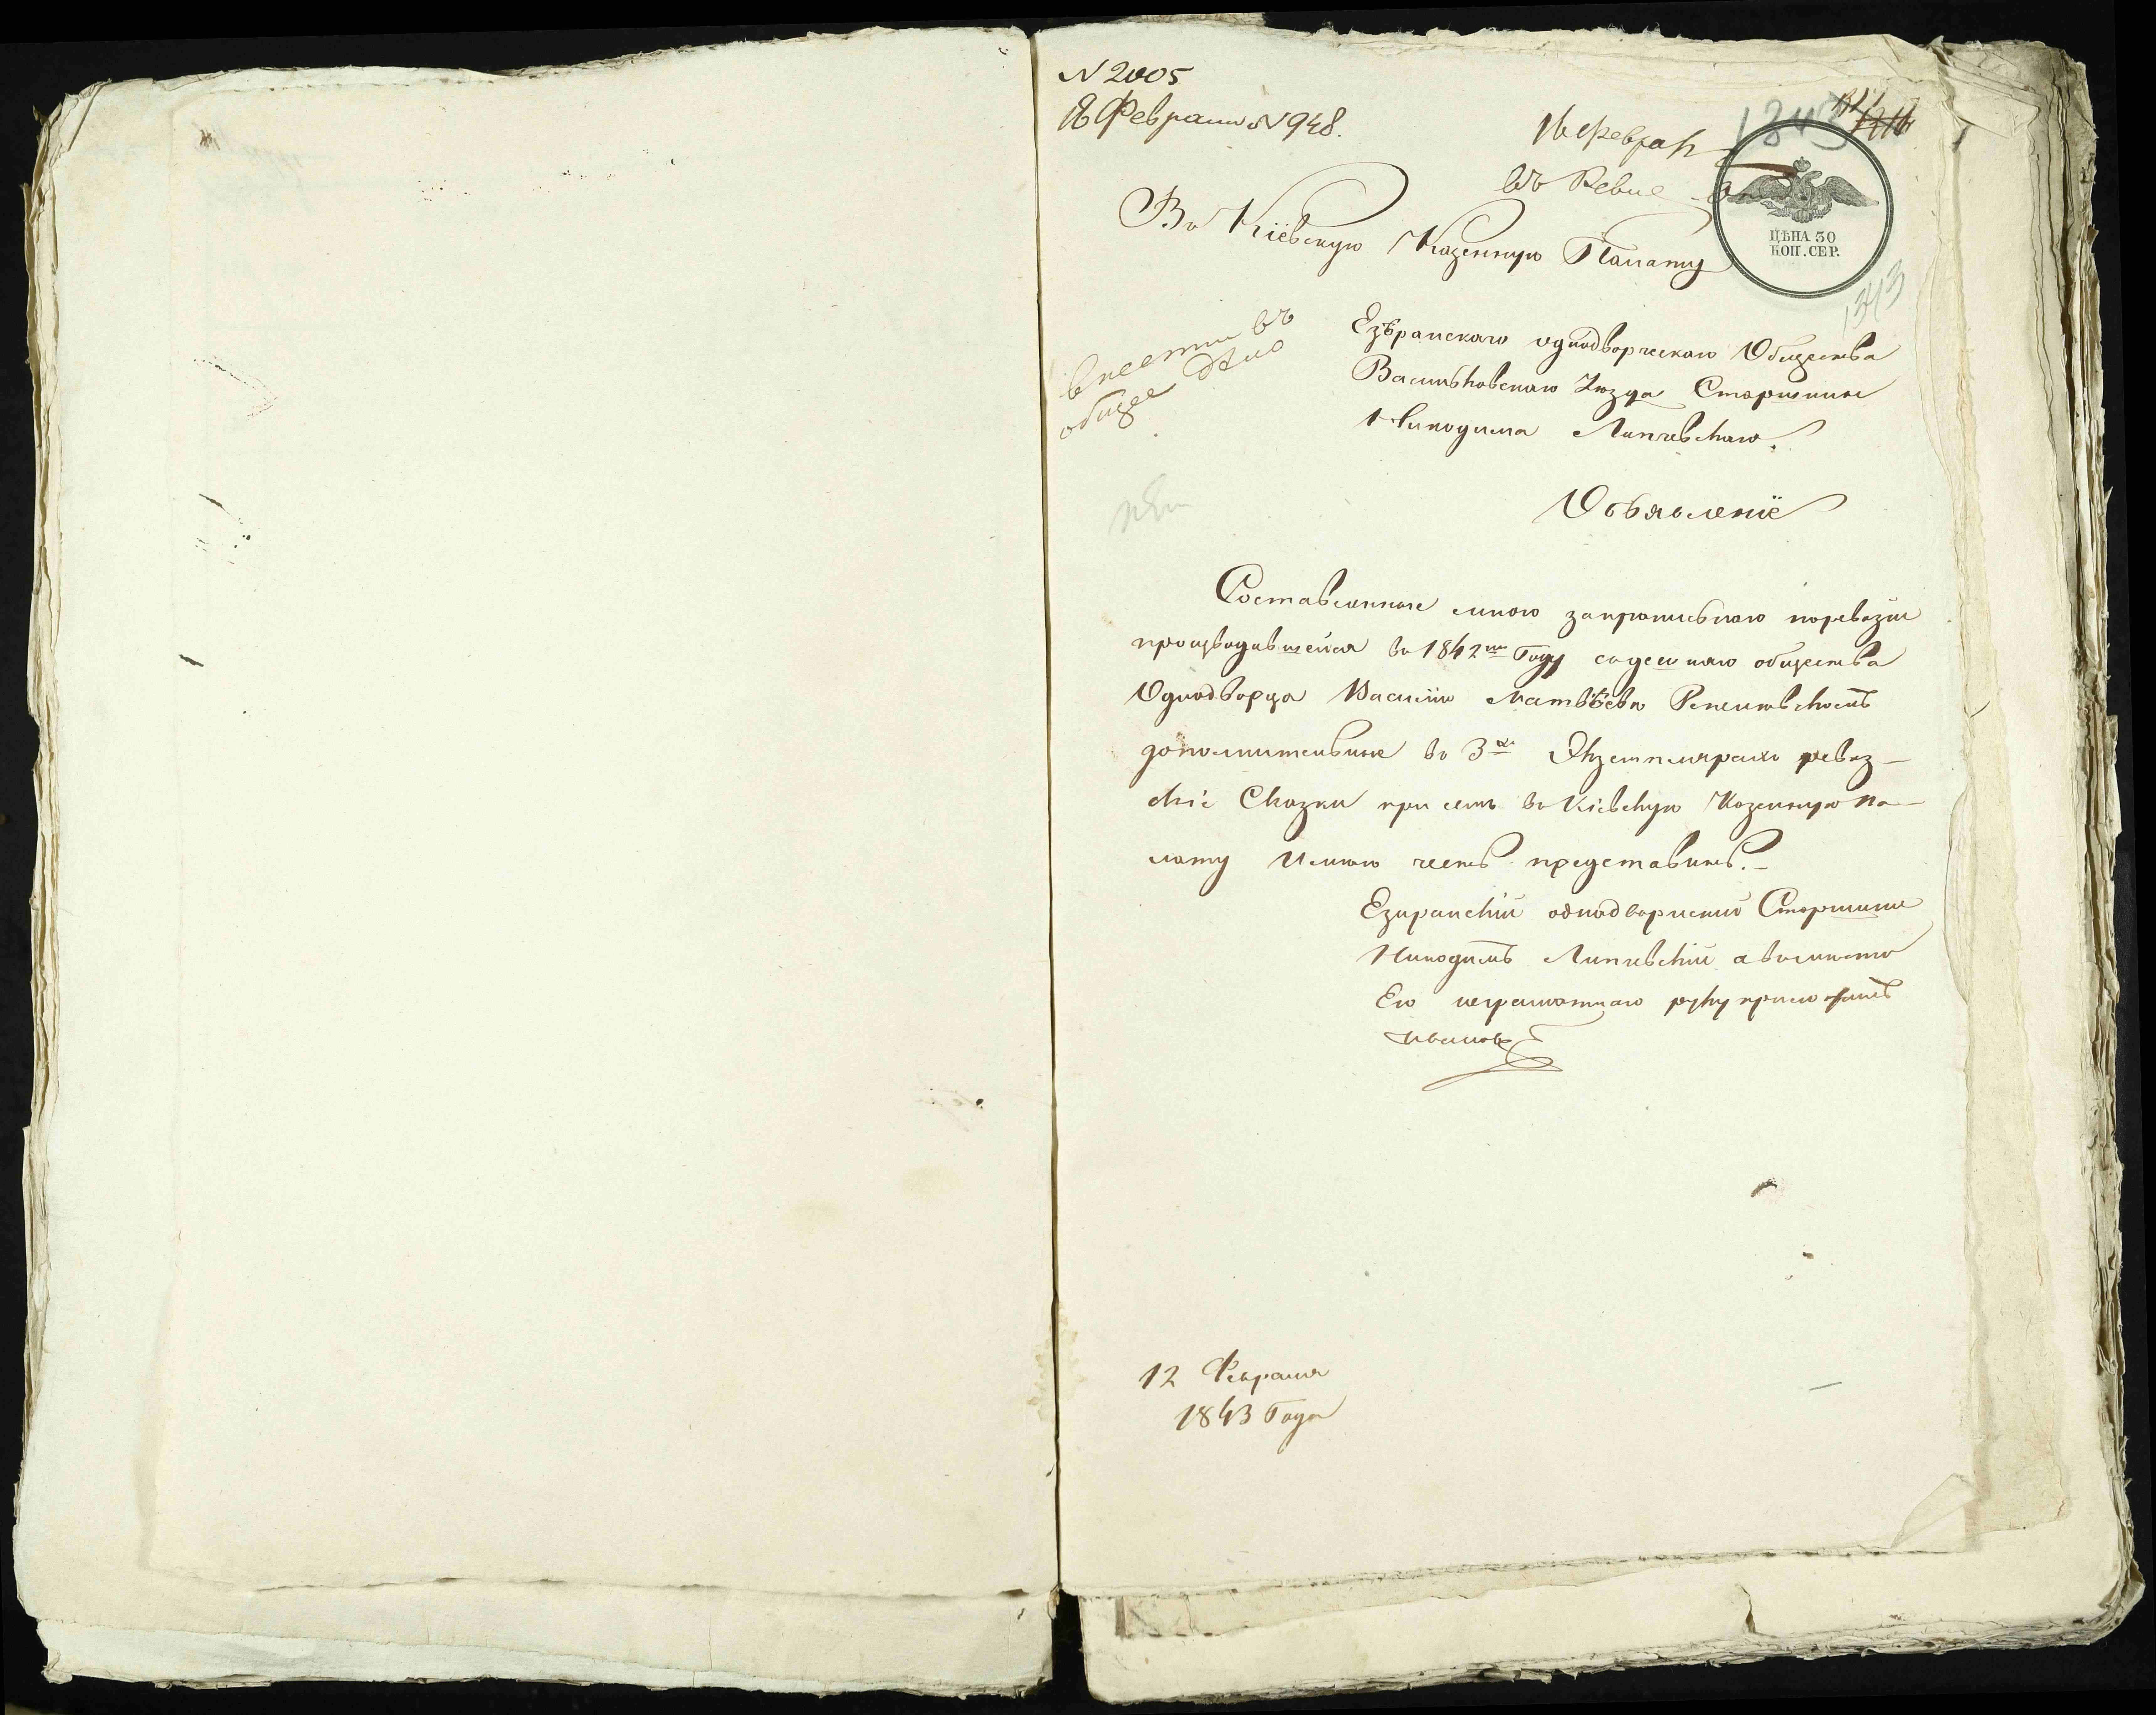 N 2005
16 Февраля N 948.
16 Февраля
1343
въ Ревиз.
Въ Кіевскую Казенную Палату
ЦѢНА 30
КОП. СЕР.
1343
внести въ
общее дѣло
Езѣранскаго однодворческаго Общества
Васильковскаго Уѣзда Старшины
Никодима Липчевскаго.
Объявленіе
Составленные мною
производившейся въ 1842мъ Году общества
Однодворца Василію Матвѣеву
дополнительные въ 3хъ Экземплярахъ ревиз-
скіе Сказки при семъ въ Кіевскую Казенную Па-
лату Имѣю честь представить.-
Езиранскій однодворческій Старшина
Никодимъ Липчевскій а вомѣсто
Его неграмотнаго руку приложилъ
12 Февраля
1843 Года